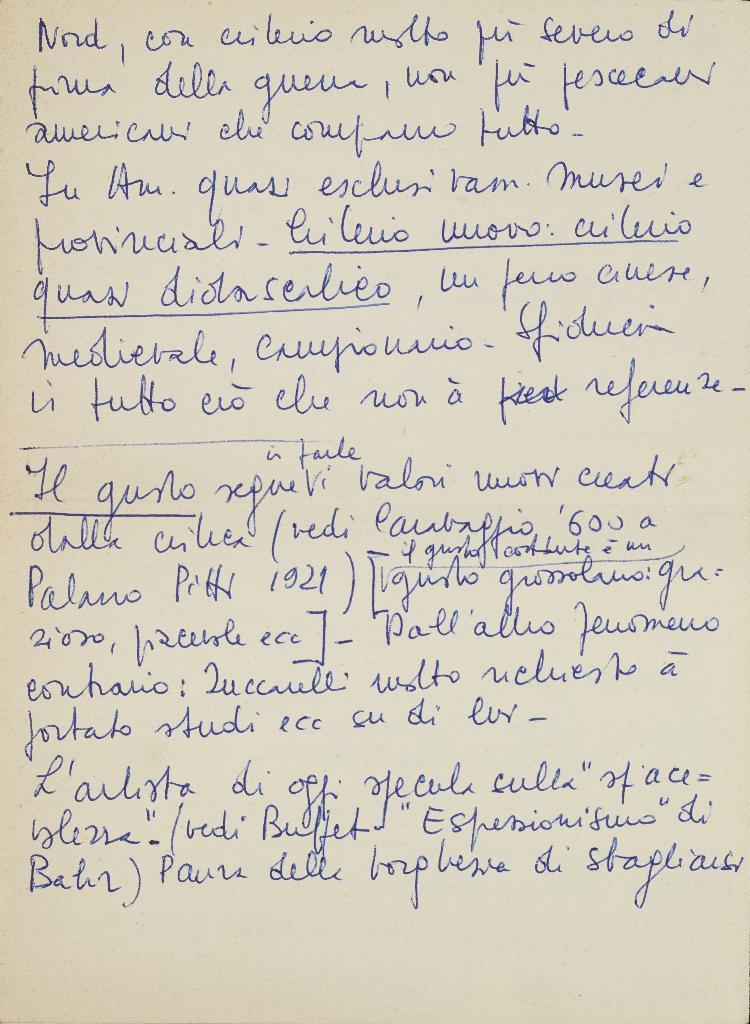 Nord, con criterio molto più severo di
prima della guerra, non più pescecani
americani che comprano tutto -
In Am. quasi esclusivam. musei e
provinciali - Criterio nuovo: criterio
quasi didascalico, un pezzo cinese,
medievale, campionario - Sfiducia
in tutto ciò che non à referenze -
in parte
Il gusto segue i valori nuovi creati
dalla critica (vedi Caravaggio '600 a
il gusto costante è un
Palazzo Pitti 1921) [gusto grossolano: gra=
zioso, piacevole ecc] - Dall'altro fenomeno
contrario: Zuccarelli molto richiesto à
portato studi ecc su di lui -
L'artista di oggi specula sulla "spiace=
volezza" - (vedi Buffet - "Espressionismo" di
Bahr) Paura della borghesia di sbagliarsi